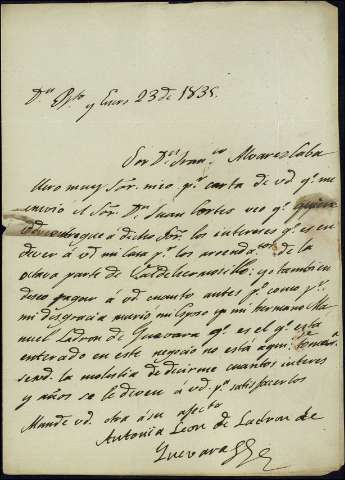 Dn Bto y Enero 23 de 1835.
Sor Dn Franco Alvarez Caba
Muy Sor. mio pr. carta de vd. qe. me
envió el Sor. Dn Juan Cortes veo qe. quiere
vd. entregue a dicho Sor. los intereses qe. es en
dever á vd. mi casa pr. los arrendatos. de la
octava parte de; yo tambien
deseo pagar a vd. cuanto antes pr. como pr.
mi disgracia murio mi Esposo y mi hermano Ma
nuel Ladron de Guevara qe. es el qe. está
enterado en este negocio no está aqui: tomará
send. la molestia de decirme cuantos interes
y años se le deven á vd. pa. satisfacerlos
Mande vd. otra á su afecta
Antonia Leon de Ladron de
Guevara